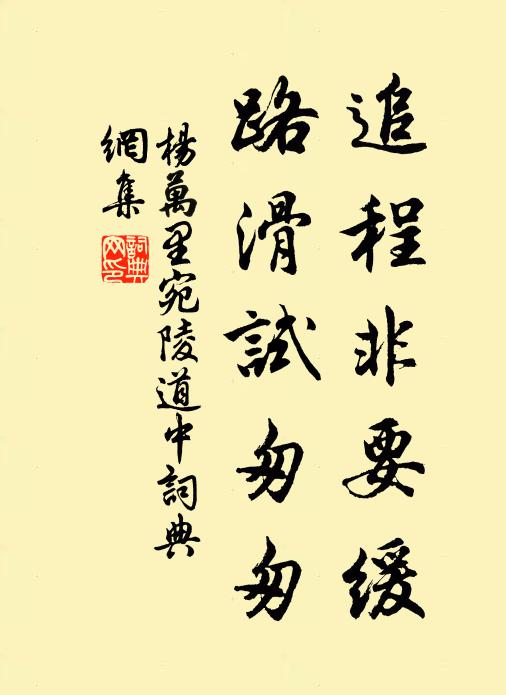 追程非要緩
路滑試匆匆
楊萬里宛陵道中詞典
網集
詞典
网印